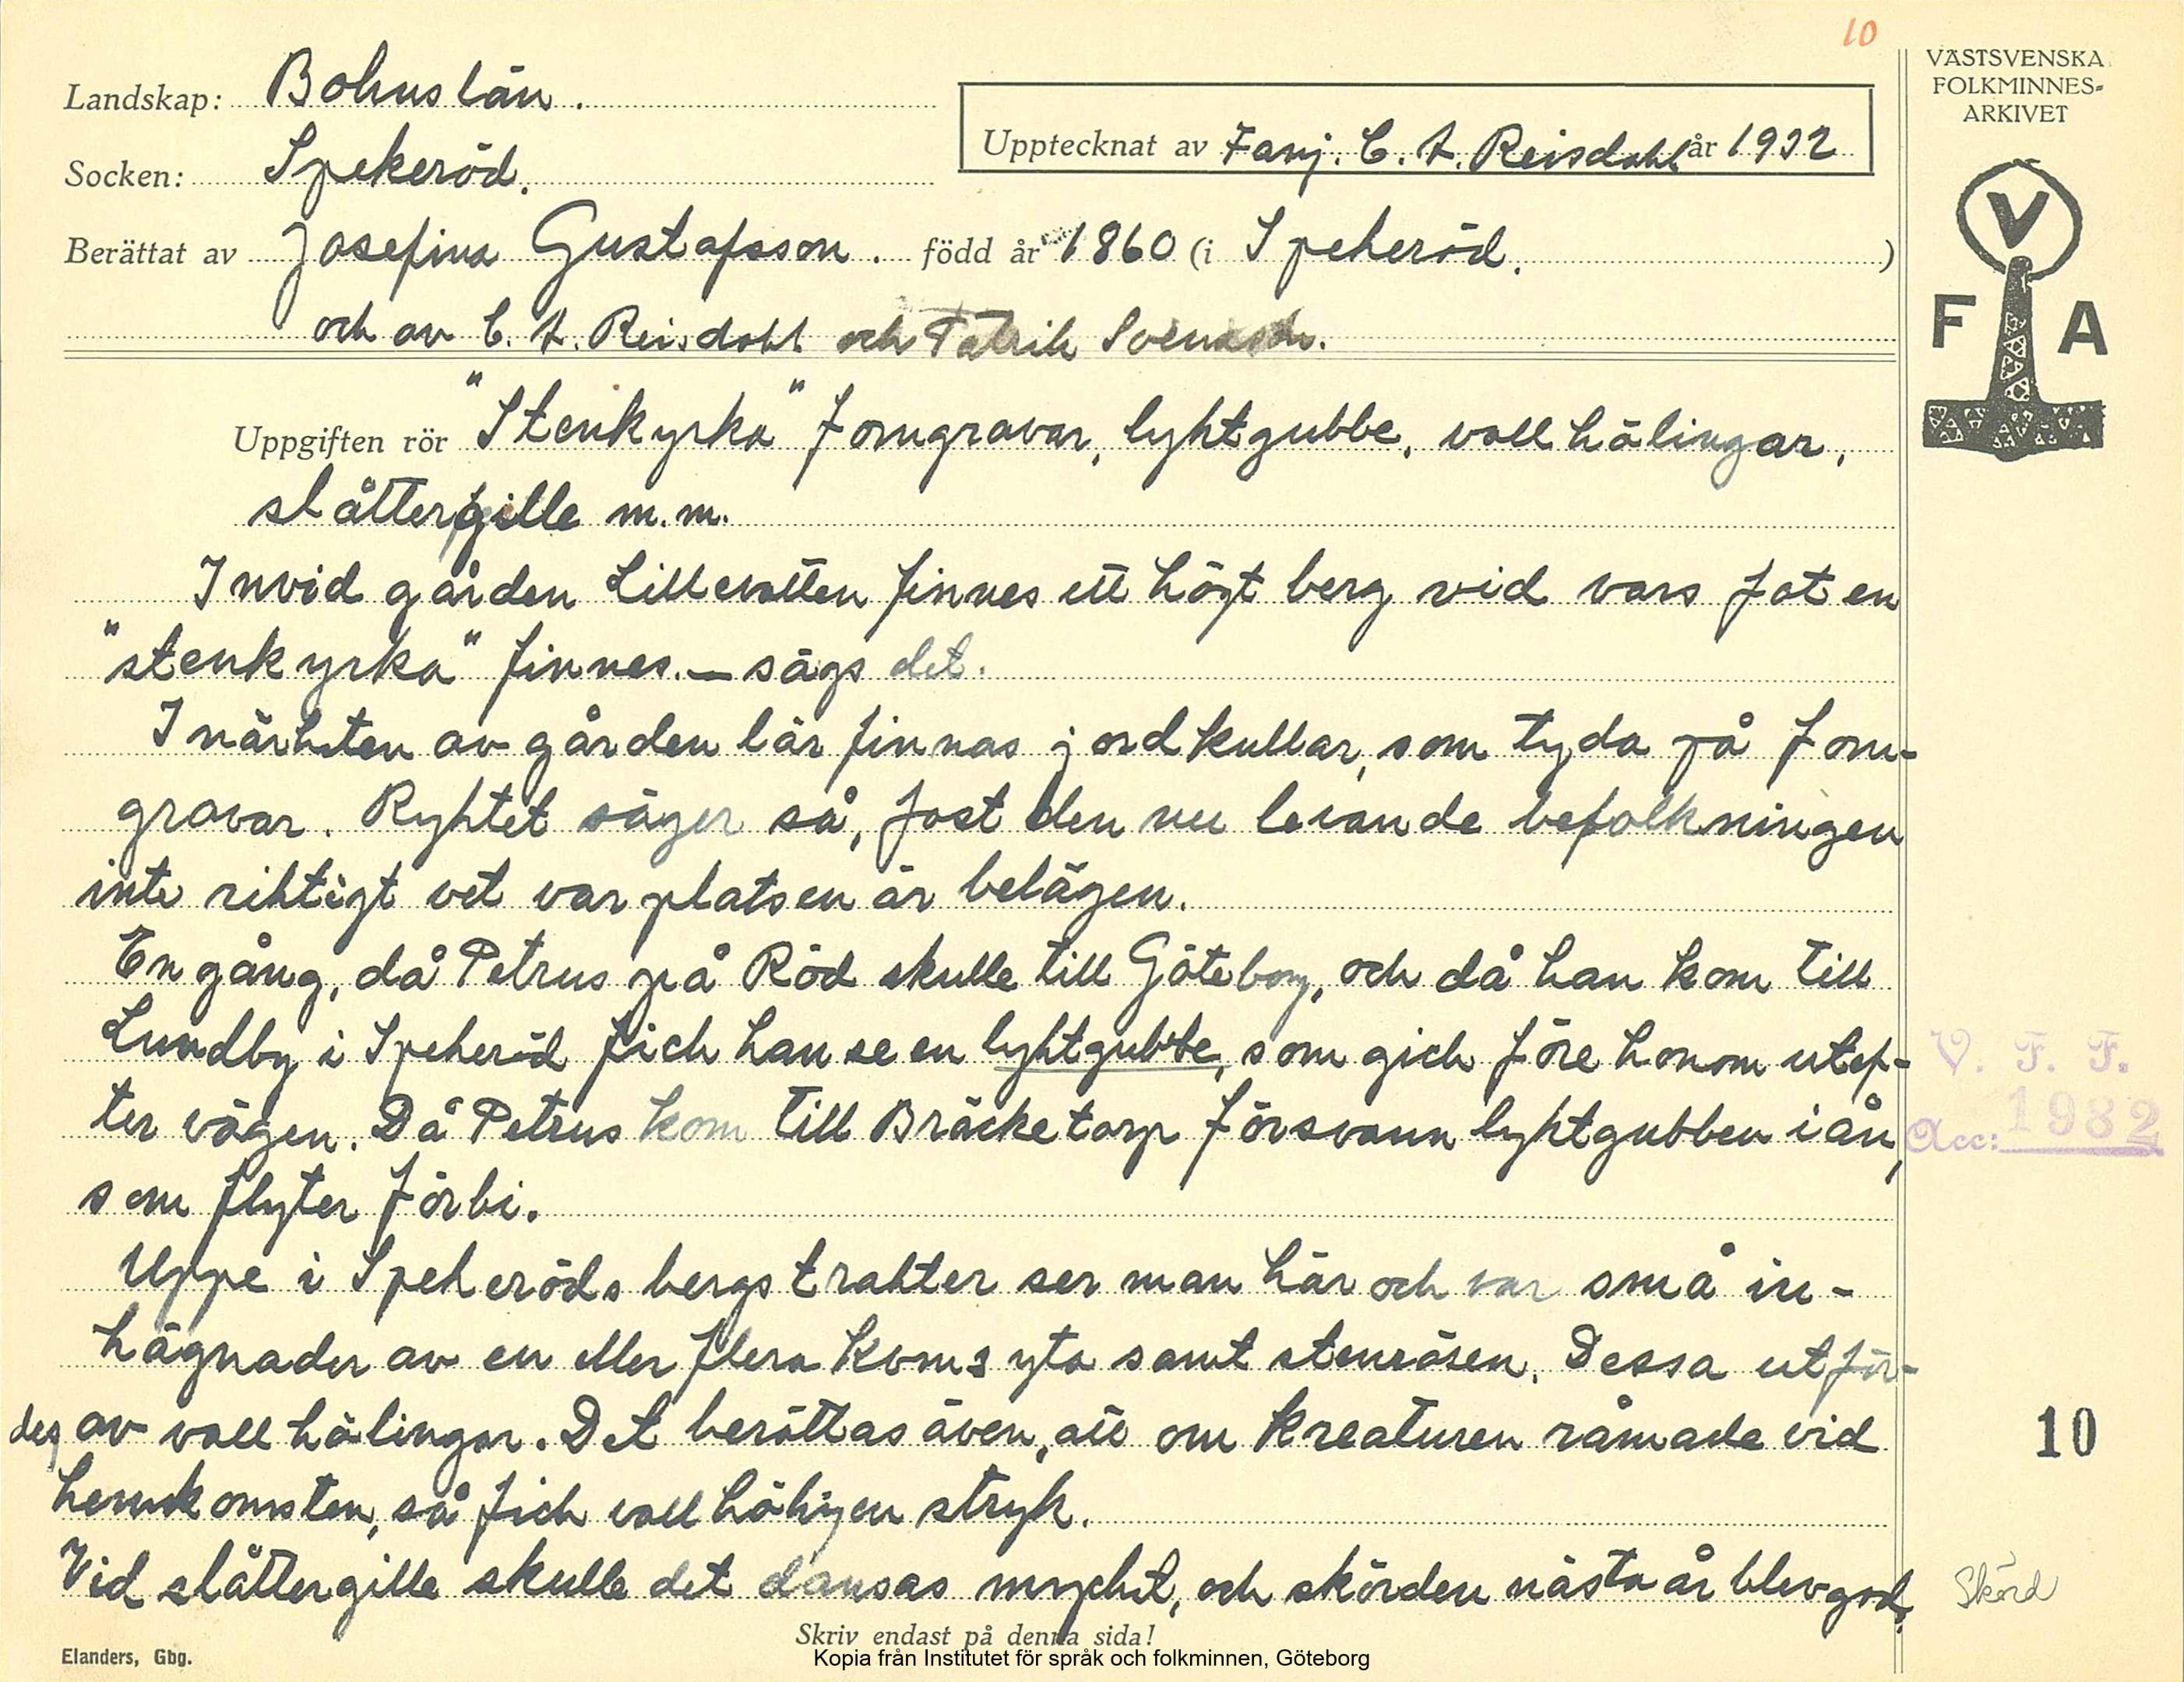 10
VÄSTSVENSKA
FOLKMINNES-
ARKIVET
Landskap: Bohuslän.
Upptecknat av Fanj. C. A. Reisdahl år 1932
Socken: Spekeröd.
Berättat av Josefina Gustafsson. född år 1860 (i Spekeröd.)
och av C. A. Reisdahl och Patrik Svensson.
V
F A
Uppgiften rör "Stenkyrka" forngravar, lyktgubbe, vallhälingar,
slåttergille m.m.
Invid gården Lillevatten finnes ett högt berg vid vars fot en
"stenkyrka" finnes. — sägs det.
I närheten av gården lär finnas jordkullar, som tyda på forn-
gravar. Ryktet säger så, fast den nu levande befolkningen
inte riktigt vet var platsen är belägen.
En gång, då Petrus på Röd skulle till Göteborg, och då han kom till
Lundby i Spekeröd fick han se en lyktgubbe, som gick före honom utef-
ter vägen. Då Petrus kom till Bräcketorp försvann lyktgubben i ån,
som flyter förbi.
Uppe i Spekeröds bergstrakter ser man här och var små in-
hägnader av en eller flera kvm:s yta samt stenrösen. Dessa utför-
des av vallhälingar. Det berättas även, att om kreaturen råmade vid
hemkomsten, så fick vallhälingen stryk.
Vid slåttergille skulle det dansas mycket, och skörden nästa år blev god.
V. F. F.
Acc: 1932
10
Skörd
Skriv endast på denna sida!
Elanders, Gbg.
Kopia från Institutet för språk och folkminnen, Göteborg